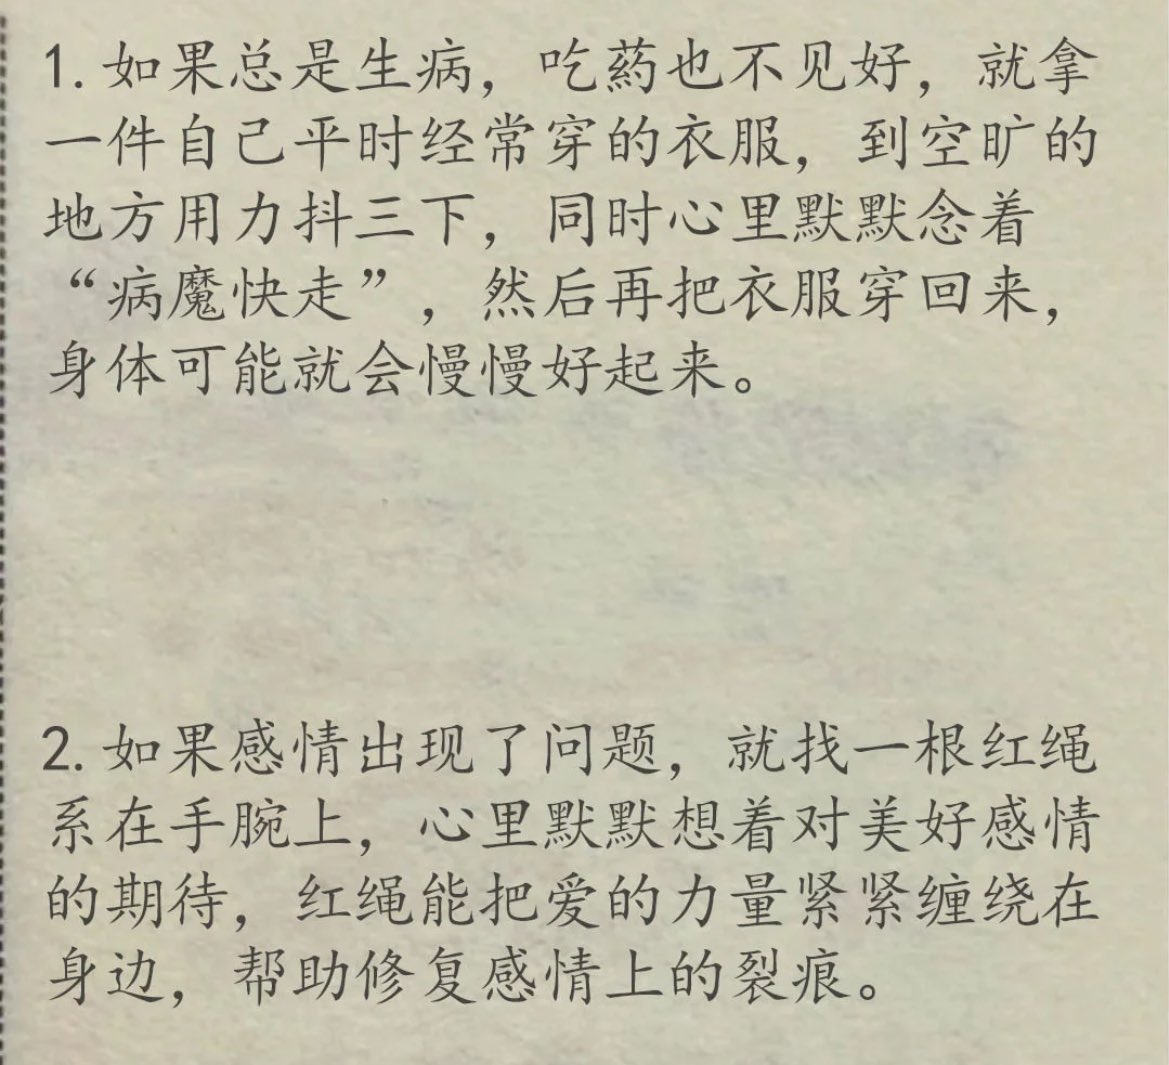 1. 如果总是生病，吃葯也不见好，就拿
一件自己平时经常穿的衣服，到空旷的
地方用力抖三下，同时心里默默念着
“病魔快走”，然后再把衣服穿回来，
身体可能就会慢慢好起来。
2. 如果感情出现了问题，就找一根红绳
系在手腕上，心里默默想着对美好感情
的期待，红绳能把爱的力量紧紧缠绕在
身边，帮助修复感情上的裂痕。